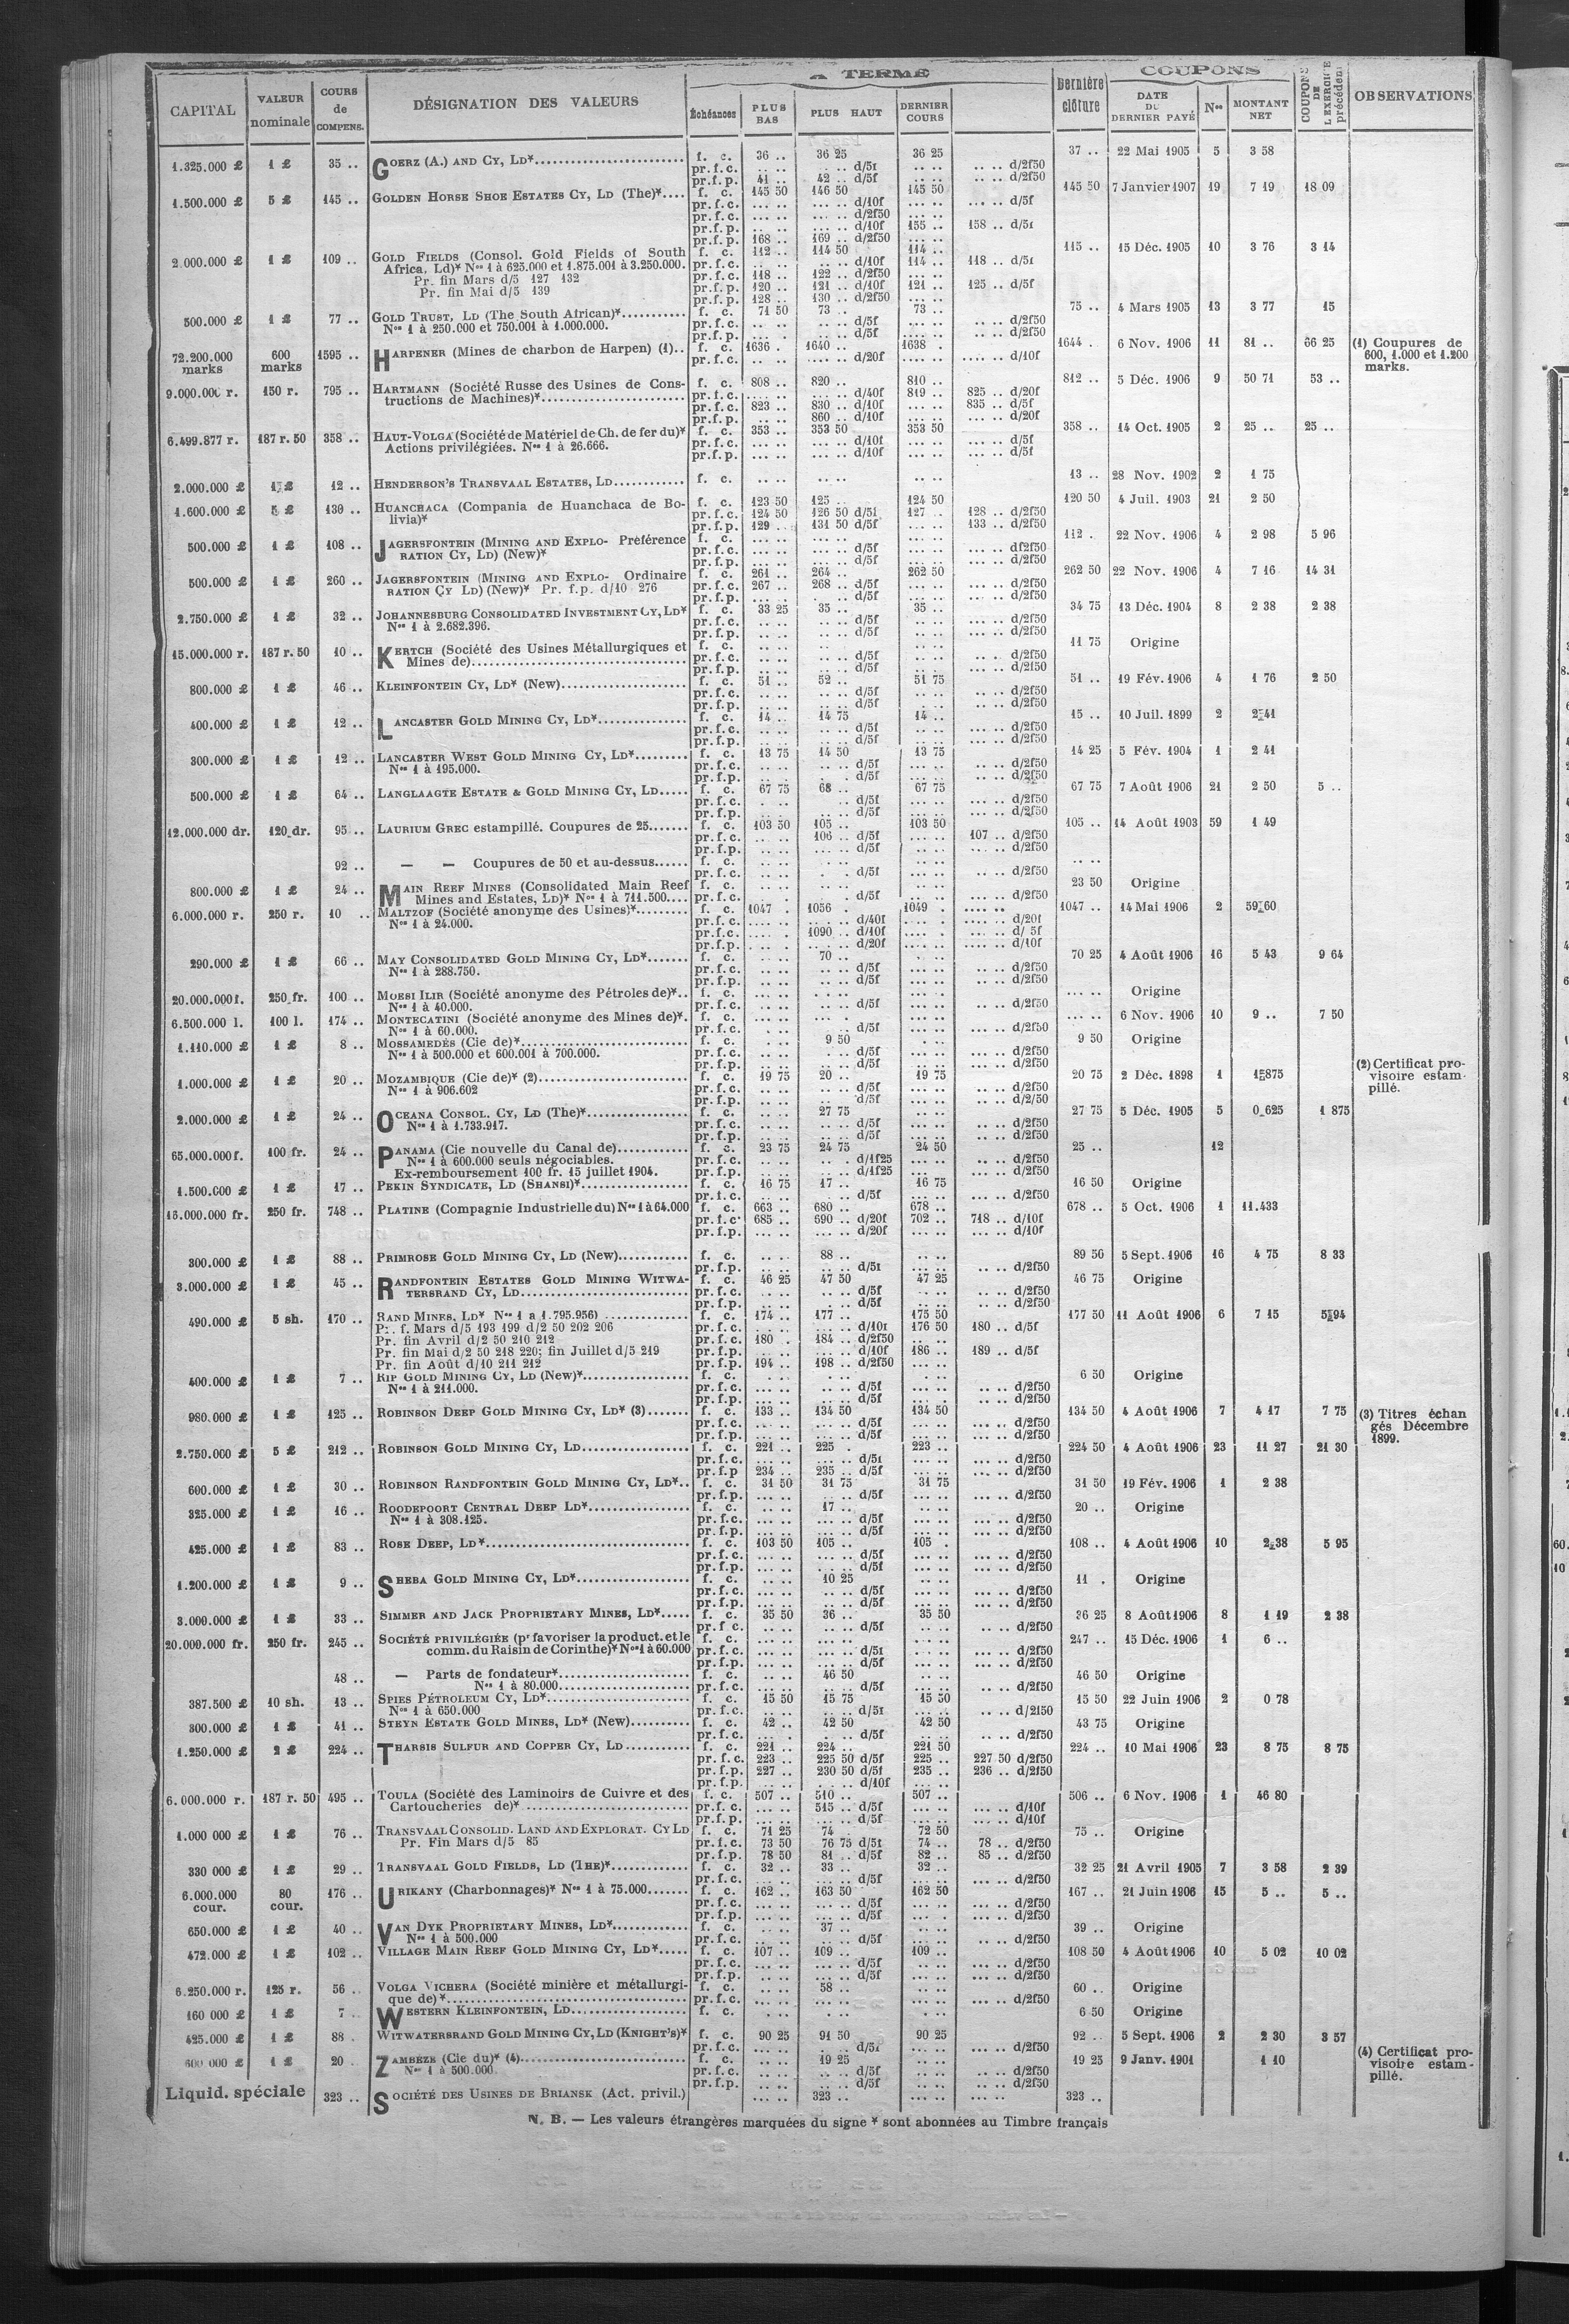 A TERME
COUPONS
CAPITAL | VALEUR nominale | COURS de COMPENS. | DÉSIGNATION DES VALEURS | Échéances | PLUS BAS | PLUS HAUT | DERNIER COURS | Dernière clôture | DATE DU DERNIER PAYÉ | Nos | MONTANT NET | COUPONS DE L'EXERCICE précédent | OBSERVATIONS
1.325.000 £ | 1 £ | 35 .. | GOERZ (A.) AND CY, LD* | f. c. | 36 .. | 36 25 | 36 25 | 37 .. | 22 Mai 1905 | 5 | 3 58
pr.f.c. | .. .. | .. .. d/5f | .. .. | .. .. d/2f50
pr.f.p. | 41 .. | 42 .. d/5f | .. .. | .. .. d/2f50
1.500.000 £ | 5 £ | 145 .. | GOLDEN HORSE SHOE ESTATES CY, LD (The)* | f. c. | 145 50 | 146 50 | 145 50 | 145 50 | 7 Janvier 1907 | 19 | 7 19 | 18 09
pr.f.c. | ... .. | ... .. d/10f | ... .. | ... .. d/5f
pr.f.c. | ... .. | ... .. d/2f50 | ... ..
pr.f.p. | ... .. | ... .. d/10f | 155 .. | 158 .. d/5f
pr.f.p. | 168 .. | 169 .. d/2f50 | ... ..
2.000.000 £ | 1 £ | 109 .. | GOLD FIELDS (Consol. Gold Fields of South | f. c. | 112 .. | 114 50 | 114 .. | 115 .. | 15 Déc. 1905 | 10 | 3 76 | 3 14
Africa, Ld)* Nos 1 à 625.000 et 1.875.001 à 3.250.000. | pr.f.c. | .. .. | .. .. d/10f | 114 .. | 118 .. d/5f
Pr. fin Mars d/5 127 132 | pr.f.c. | 118 .. | 122 .. d/2f50 | ... ..
Pr. fin Mai d/5 139 | pr.f.p. | 120 .. | 121 .. d/10f | 121 .. | 125 .. d/5f
pr.f.p. | 128 .. | 130 .. d/2f50 | ... ..
500.000 £ | 1 £ | 77 .. | GOLD TRUST, LD (The South African)* | f. c. | 71 50 | 73 .. | 73 .. | 75 .. | 4 Mars 1905 | 13 | 3 77 | 15
Nos 1 à 250.000 et 750.001 à 1.000.000. | pr.f.c. | .. .. | .. .. d/5f | .. .. | .. .. d/2f50
pr.f.p. | .. .. | .. .. d/5f | .. .. | .. .. d/2f50
72.200.000 marks | 600 marks | 1595 .. | HARPENER (Mines de charbon de Harpen) (1).. | f. c. | 1636 . | 1640 .. | 1638 . | 1644 . | 6 Nov. 1906 | 11 | 81 .. | 66 25 | (1) Coupures de 600, 1.000 et 1.200 marks.
pr.f.c. | .. .. | .... .. d/20f | .... .. | .... .. d/10f
9.000.000 r. | 150 r. | 795 .. | HARTMANN (Société Russe des Usines de Cons- | f. c. | 808 .. | 820 .. | 810 .. | 812 .. | 5 Déc. 1906 | 9 | 50 71 | 53 ..
tructions de Machines)* | pr.f.c. | ... .. | ... .. d/40f | 819 .. | 825 .. d/20f
pr.f.c. | 823 .. | 830 .. d/10f | ... .. | 835 .. d/5f
pr.f.p. | ... .. | 860 .. d/10f | ... .. | ... .. d/20f
6.499.877 r. | 187 r. 50 | 358 .. | HAUT-VOLGA (Société de Matériel de Ch. de fer du)* | f. c. | 353 .. | 353 50 | 353 50 | 358 .. | 14 Oct. 1905 | 2 | 25 .. | 25 ..
Actions privilégiées. Nos 1 à 26.666. | pr.f.c. | ... .. | ... .. d/10f | ... .. | ... .. d/5f
pr.f.p. | ... .. | ... .. d/10f | ... .. | ... .. d/5f
2.000.000 £ | 1 £ | 12 .. | HENDERSON'S TRANSVAAL ESTATES, LD | f. c. | .. .. | .. .. | .. .. | 13 .. | 28 Nov. 1902 | 2 | 1 75
1.600.000 £ | 5 £ | 130 .. | HUANCHACA (Compania de Huanchaca de Bo- | f. c. | 123 50 | 125 .. | 124 50 | 120 50 | 4 Juil. 1903 | 21 | 2 50
livia)* | pr.f.c. | 124 50 | 126 50 d/5f | 127 .. | 128 .. d/2f50
pr.f.p. | 129 .. | 131 50 d/5f | ... .. | 133 .. d/2f50
500.000 £ | 1 £ | 108 .. | JAGERSFONTEIN (MINING AND EXPLO- Préférence | f. c. | ... .. | ... .. | ... .. | 112 . | 22 Nov. 1906 | 4 | 2 98 | 5 96
RATION CY, LD) (New)* | pr.f.c. | ... .. | ... .. d/5f | ... .. | ... .. d/2f50
pr.f.p. | ... .. | ... .. d/5f | ... .. | ... .. d/2f50
500.000 £ | 1 £ | 260 .. | JAGERSFONTEIN (MINING AND EXPLO- Ordinaire | f. c. | 261 .. | 264 .. | 262 50 | 262 50 | 22 Nov. 1906 | 4 | 7 16 | 14 31
RATION CY LD) (New)* Pr. f.p. d/10 276 | pr.f.c. | 267 .. | 268 .. d/5f | ... .. | ... .. d/2f50
pr.f.p. | ... .. | ... .. d/5f | ... .. | ... .. d/2f50
2.750.000 £ | 1 £ | 32 .. | JOHANNESBURG CONSOLIDATED INVESTMENT CY, LD* | f. c. | 33 25 | 35 .. | 35 .. | 34 75 | 13 Déc. 1904 | 8 | 2 38 | 2 38
Nos 1 à 2.682.396. | pr.f.c. | .. .. | .. .. d/5f | .. .. | .. .. d/2f50
pr.f.p. | .. .. | .. .. d/5f | .. .. | .. .. d/2f50
15.000.000 r. | 187 r. 50 | 10 .. | KERTCH (Société des Usines Métallurgiques et | f. c. | .. .. | .. .. | .. .. | 11 75 | Origine
Mines de) | pr.f.c. | .. .. | .. .. d/5f | .. .. | .. .. d/2f50
pr.f.p. | .. .. | .. .. d/5f | .. .. | .. .. d/2f50
800.000 £ | 1 £ | 46 .. | KLEINFONTEIN CY, LD* (New) | f. c. | 51 .. | 52 .. | 51 75 | 51 .. | 19 Fév. 1906 | 4 | 1 76 | 2 50
pr.f.c. | .. .. | .. .. d/5f | .. .. | .. .. d/2f50
pr.f.p. | .. .. | .. .. d/5f | .. .. | .. .. d/2f50
400.000 £ | 1 £ | 12 .. | LANCASTER GOLD MINING CY, LD* | f. c. | 14 .. | 14 75 | 14 .. | 15 .. | 10 Juil. 1899 | 2 | 2 41
pr.f.c. | .. .. | .. .. d/5f | .. .. | .. .. d/2f50
pr.f.p. | .. .. | .. .. d/5f | .. .. | .. .. d/2f50
300.000 £ | 1 £ | 12 .. | LANCASTER WEST GOLD MINING CY, LD* | f. c. | 13 75 | 14 50 | 13 75 | 14 25 | 5 Fév. 1904 | 1 | 2 41
Nos 1 à 195.000. | pr.f.c. | .. .. | .. .. d/5f | .. .. | .. .. d/2f50
pr.f.p. | .. .. | .. .. d/5f | .. .. | .. .. d/2f50
500.000 £ | 1 £ | 64 .. | LANGLAAGTE ESTATE & GOLD MINING CY, LD | f. c. | 67 75 | 68 .. | 67 75 | 67 75 | 7 Août 1906 | 21 | 2 50 | 5 ..
pr.f.c. | .. .. | .. .. d/5f | ... .. | ... .. d/2f50
pr.f.p. | .. .. | .. .. d/5f | ... .. | ... .. d/2f50
12.000.000 dr. | 120 dr. | 95 .. | LAURIUM GREC estampillé. Coupures de 25 | f. c. | 103 50 | 105 .. | 103 50 | 105 .. | 14 Août 1903 | 59 | 1 49
pr.f.c. | .. .. | 106 .. d/5f | ... .. | 107 .. d/2f50
pr.f.p. | .. .. | ... .. d/5f | .. .. | ... .. d/2f50
92 .. | — — Coupures de 50 et au-dessus | f. c. | .. .. | .. .. | .. .. | .. ..
pr.f.c. | .. .. | .. .. d/5f | .. .. | .. .. d/2f50
800.000 £ | 1 £ | 24 .. | MAIN REEF MINES (Consolidated Main Reef | f. c. | .. .. | .. .. | .. .. | 23 50 | Origine
Mines and Estates, LD)* Nos 1 à 711.500 | pr.f.c. | .. .. | .. .. d/5f | .. .. | .. .. d/2f50
6.000.000 r. | 250 r. | 10 .. | MALTZOF (Société anonyme des Usines)* | f. c. | 1047 . | 1056 . | 1049 . | .... .. | 1047 .. | 14 Mai 1906 | 2 | 59 60
Nos 1 à 24.000. | pr.f.c. | .... .. | .... .. d/40f | .... .. | .... .. d/20f
pr.f.c. | .... . | 1090 .. d/10f | .... . | .... .. d/ 5f
pr.f.p. | .... . | .... .. d/20f | .... .. | .... .. d/10f
290.000 £ | 1 £ | 66 .. | MAY CONSOLIDATED GOLD MINING CY, LD* | f. c. | .. .. | 70 .. | .. .. | 70 25 | 4 Août 1906 | 16 | 5 43 | 9 64
Nos 1 à 288.750. | pr.f.c. | .. .. | .. .. d/5f | .. .. | .. .. d/2f50
pr.f.p. | .. .. | .. .. d/5f | .. .. | .. .. d/2f50
20.000.000 f. | 250 fr. | 100 .. | MOESI ILIR (Société anonyme des Pétroles de)*.. | f. c. | ... .. | ... .. | ... .. | ... .. | Origine
Nos 1 à 40.000. | pr.f.c. | ... .. | ... .. d/5f | ... .. | ... .. d/2f50
6.500.000 l. | 100 l. | 174 .. | MONTECATINI (Société anonyme des Mines de)*. | f. c. | ... .. | ... .. | ... .. | ... .. | 6 Nov. 1906 | 10 | 9 .. | 7 50
Nos 1 à 60.000. | pr.f.c. | .. .. | .. .. d/5f | ... .. | ... .. d/2f50
1.110.000 £ | 1 £ | 8 .. | MOSSAMEDÈS (Cie de)* | f. c. | .. .. | 9 50 | .. .. | 9 50 | Origine
Nos 1 à 500.000 et 600.001 à 700.000. | pr.f.c. | .. .. | .. .. d/5f | .. .. | ... .. d/2f50
pr.f.p. | .. .. | .. .. d/5f | .. .. | ... .. d/2f50
1.000.000 £ | 1 £ | 20 .. | MOZAMBIQUE (Cie de)* (2) | f. c. | 19 75 | 20 .. | 19 75 | 20 75 | 2 Déc. 1898 | 1 | 1 875 | (2) Certificat provisoire estampillé.
Nos 1 à 906.602 | pr.f.c. | .. .. | .. .. d/5f | .. .. | .. .. d/2f50
pr.f.p. | .. .. | .. .. d/5f | .. .. | .. .. d/2/50
2.000.000 £ | 1 £ | 24 .. | OCEANA CONSOL. CY, LD (The)* | f. c. | .. .. | 27 75 | .. .. | 27 75 | 5 Déc. 1905 | 5 | 0 625 | 1 875
Nos 1 à 1.733.917. | pr.f.c. | .. .. | .. .. d/5f | .. .. | .. .. d/2f50
pr.f.p. | .. .. | .. .. d/5f | .. .. | .. .. d/2f50
65.000.000 f. | 100 fr. | 24 .. | PANAMA (Cie nouvelle du Canal de) | f. c. | 23 75 | 24 75 | 24 50 | 25 .. | 12
Nos 1 à 600.000 seuls négociables. | pr.f.c. | .. .. | .. .. d/1f25 | ... .. | .. .. d/2f50
Ex-remboursement 100 fr. 15 juillet 1904. | pr.f.p. | .. .. | .. .. d/1f25 | ... .. | .. .. d/2f50
1.500.000 £ | 1 £ | 17 .. | PEKIN SYNDICATE, LD (SHANSI)* | f. c. | 16 75 | 17 .. | 16 75 | 16 50 | Origine
pr.f.c. | .. .. | .. .. d/5f | .. .. | ... .. d/2f50
15.000.000 fr. | 250 fr. | 748 .. | PLATINE (Compagnie Industrielle du) Nos 1 à 64.000 | f. c. | 663 .. | 680 .. | 678 .. | 678 .. | 5 Oct. 1906 | 1 | 11.433
pr.f.c. | 685 .. | 690 .. d/20f | 702 .. | 718 .. d/10f
pr.f.p. | ... .. | ... .. d/20f | ... .. | ... .. d/10f
300.000 £ | 1 £ | 88 .. | PRIMROSE GOLD MINING CY, LD (New) | f. c. | .. .. | 88 .. | .. .. | 89 50 | 5 Sept. 1906 | 16 | 4 75 | 8 33
pr.f.p. | .. .. | .. .. d/5f | .. .. | .. .. d/2f50
3.000.000 £ | 1 £ | 45 .. | RANDFONTEIN ESTATES GOLD MINING WITWA- | f. c. | 46 25 | 47 50 | 47 25 | 46 75 | Origine
TERSRAND CY, LD | pr.f.c. | .. .. | .. .. d/5f | .. .. | .. .. d/2f50
pr.f.p. | .. .. | .. .. d/5f | .. .. | .. .. d/2f50
490.000 £ | 5 sh. | 170 .. | RAND MINES, LD* Nos 1 a 1.795.956) | f. c. | 174 .. | 177 .. | 175 50 | 177 50 | 11 Août 1906 | 6 | 7 15 | 5 94
Pr. f. Mars d/5 193 199 d/2 50 202 206 | pr.f.c. | ... .. | ... .. d/10f | 176 50 | 180 .. d/5f
Pr. fin Avril d/2 50 210 212 | pr.f.c. | 180 .. | 184 .. d/2f50 | .. ..
Pr. fin Mai d/2 50 218 220; fin Juillet d/5 219 | pr.f.p. | ... .. | ... .. d/10f | 186 .. | 189 .. d/5f
Pr. fin Août d/10 211 212 | pr.f.p. | 194 .. | 198 .. d/2f50 | ... ..
400.000 £ | 1 £ | 7 .. | RIP GOLD MINING CY, LD (New)* | f. c. | .. .. | .. .. | .. .. | 6 50 | Origine
Nos 1 à 211.000. | pr.f.c. | ... .. | .. .. d/5f | ... .. | .. .. d/2f50
pr.f.p. | ... .. | .. .. d/5f | ... .. | .. .. d/2f50
980.000 £ | 1 £ | 125 .. | ROBINSON DEEP GOLD MINING CY, LD* (3) | f. c. | 133 .. | 134 50 | 134 50 | 134 50 | 4 Août 1906 | 7 | 4 17 | 7 75 | (3) Titres échangés Décembre 1899.
pr.f.c. | ... .. | ... .. d/5f | ... .. | ... .. d/2f50
pr.f.p. | ... .. | ... .. d/5f | ... .. | ... .. d/2f50
2.750.000 £ | 5 £ | 212 .. | ROBINSON GOLD MINING CY, LD | f. c. | 221 .. | 225 . | 223 .. | 224 50 | 4 Août 1906 | 23 | 11 27 | 21 30
pr.f.c. | ... .. | ... .. d/5f | ... .. | ... .. d/2f50
pr.f.p | 234 .. | 235 .. d/5f | ... .. | ... .. d/2f50
600.000 £ | 1 £ | 30 .. | ROBINSON RANDFONTEIN GOLD MINING CY, LD*.. | f. c. | 31 50 | 31 75 | 31 75 | 31 50 | 19 Fév. 1906 | 1 | 2 38
pr.f.p. | ... .. | ... .. d/5f | ... .. | ... .. d/2f50
325.000 £ | 1 £ | 16 .. | ROODEPOORT CENTRAL DEEP LD* | f. c. | .. .. | 17 .. | .. .. | 20 .. | Origine
Nos 1 à 308.125. | pr.f.c. | ... .. | ... .. d/5f | ... .. | ... .. d/2f50
pr.f.p. | ... .. | ... .. d/5f | ... .. | ... .. d/2f50
425.000 £ | 1 £ | 83 .. | ROSE DEEP, LD* | f. c. | 103 50 | 105 .. | 105 . | 108 .. | 4 Août 1906 | 10 | 2 38 | 5 95
pr.f.c. | ... .. | ... .. d/5f | ... .. | ... .. d/2f50
pr.f.p. | ... .. | ... .. d/5f | ... .. | ... .. d/2f50
1.200.000 £ | 1 £ | 9 .. | SHEBA GOLD MINING CY, LD* | f. c. | .. .. | 10 25 | .. .. | 11 . | Origine
pr.f.c. | ... .. | ... .. d/5f | ... .. | ... .. d/2f50
pr.f.p. | ... .. | ... .. d/5f | ... .. | ... .. d/2f50
3.000.000 £ | 1 £ | 33 .. | SIMMER AND JACK PROPRIETARY MINES, LD* | f. c. | 35 50 | 36 .. | 35 50 | 36 25 | 8 Août 1906 | 8 | 1 19 | 2 38
pr.f.c. | .. .. | .. .. d/5f | .. .. | .. .. d/2f50
20.000.000 fr. | 250 fr. | 245 .. | SOCIÉTÉ PRIVILÉGIÉE (pr favoriser la product. et le | f. c. | ... .. | ... .. | ... .. | 247 .. | 15 Déc. 1906 | 1 | 6 ..
comm. du Raisin de Corinthe)* Nos 1 à 60.000 | pr.f.c. | ... .. | ... .. d/5f | ... .. | ... .. d/2f50
pr.f.p. | ... .. | ... .. d/5f | ... .. | ... .. d/2f50
48 .. | — Parts de fondateur* | f. c. | .. .. | 46 50 | .. .. | 46 50 | Origine
Nos 1 à 80.000 | pr.f.c. | .. .. | .. .. d/5f | .. .. | .. .. d/2f50
387.500 £ | 10 sh. | 13 .. | SPIES PÉTROLEUM CY, LD* | f. c. | 15 50 | 15 75 | 15 50 | 15 50 | 22 Juin 1906 | 2 | 0 78
Nos 1 à 650.000 | pr.f.c. | .. .. | .. .. d/5f | .. .. | .. .. d/2f50
300.000 £ | 1 £ | 41 .. | STEYN ESTATE GOLD MINES, LD* (New) | f. c. | 42 .. | 42 50 | 42 50 | 43 75 | Origine
pr.f.c. | ... .. | .. .. d/5f | .. .. | .. .. d/2f50
1.250.000 £ | 2 £ | 224 .. | THARSIS SULFUR AND COPPER CY, LD | f. c. | 221 .. | 224 .. | 221 50 | 224 .. | 10 Mai 1906 | 23 | 8 75 | 8 75
pr.f.c. | 223 .. | 225 50 d/5f | 225 .. | 227 50 d/2f50
pr.f.p. | 227 .. | 230 50 d/5f | 235 .. | 236 .. d/2f50
pr.f.p. | ... .. | ... .. d/10f | ... ..
6.000.000 r. | 187 r. 50 | 495 .. | TOULA (Société des Laminoirs de Cuivre et des | f. c. | 507 .. | 510 .. | 507 .. | 506 .. | 6 Nov. 1906 | 1 | 46 80
Cartoucheries de)* | pr.f.c. | ... .. | 515 .. d/5f | ... .. | ... .. d/10f
pr.f.p. | ... .. | ... .. d/5f | ... .. | ... .. d/10f
1.000 000 £ | 1 £ | 76 .. | TRANSVAAL CONSOLID. LAND AND EXPLORAT. CY LD | f. c. | 71 25 | 74 .. | 72 50 | 75 .. | Origine
Pr. Fin Mars d/5 85 | pr.f.c. | 73 50 | 76 75 d/5f | 74 .. | 78 .. d/2f50
pr.f.p. | 78 50 | 81 .. d/5f | 82 .. | 85 .. d/2f50
330 000 £ | 1 £ | 29 .. | TRANSVAAL GOLD FIELDS, LD (THE)* | f. c. | 32 .. | 33 .. | 32 .. | 32 25 | 21 Avril 1905 | 7 | 3 58 | 2 39
pr.f.c. | .. .. | .. .. d/5f | .. .. | .. .. d/2f50
6.000.000 cour. | 80 cour. | 176 .. | URIKANY (Charbonnages)* Nos 1 à 75.000 | f. c. | 162 .. | 163 50 | 162 50 | 167 .. | 21 Juin 1906 | 15 | 5 .. | 5 ..
pr.f.c. | ... .. | ... .. d/5f | ... .. | ... .. d/2f50
pr.f.p. | ... .. | ... .. d/5f | ... .. | ... .. d/2f50
650.000 £ | 1 £ | 40 .. | VAN DYK PROPRIETARY MINES, LD* | f. c. | .. .. | 37 .. | .. .. | 39 .. | Origine
Nos 1 à 500.000 | pr.f.c. | .. .. | .. .. d/5f | .. .. | .. .. d/2f50
472.000 £ | 1 £ | 102 .. | VILLAGE MAIN REEF GOLD MINING CY, LD* | f. c. | 107 .. | 109 .. | 109 .. | 108 50 | 4 Août 1906 | 10 | 5 02 | 10 02
pr.f.c. | ... .. | ... .. d/5f | ... .. | ... .. d/2f50
pr.f.p. | ... .. | ... .. d/5f | ... .. | ... .. d/2f50
6.250.000 r. | 125 r. | 56 .. | VOLGA VICHERA (Société minière et métallurgi- | f. c. | .. .. | 58 .. | .. .. | 60 .. | Origine
que de)* | pr.f.c. | ... .. | ... .. | ... .. | ... .. d/2f50
160 000 £ | 1 £ | 7 . | WESTERN KLEINFONTEIN, LD | f. c. | .. .. | .. .. | .. .. | 6 50 | Origine
425.000 £ | 1 £ | 88 . | WITWATERSRAND GOLD MINING CY, LD (KNIGHT'S)* | f. c. | 90 25 | 91 50 | 90 25 | 92 .. | 5 Sept. 1906 | 2 | 2 30 | 3 57
pr.f.c. | .. .. | .. .. d/5f | .. .. | .. .. d/2f50
600 000 £ | 1 £ | 20 . | ZAMBÈZE (Cie du)* (4) | f. c. | .. .. | 19 25 | .. .. | 19 25 | 9 Janv. 1901 | 1 10 | (4) Certificat provisoire estampillé.
Nos 1 à 500.000 | pr.f.c. | .. .. | .. .. d/5f | .. .. | .. .. d/2f50
pr.f.p. | .. .. | .. .. d/5f | .. .. | .. .. d/2f50
Liquid. spéciale | 323 .. | SOCIÉTÉ DES USINES DE BRIANSK (Act. privil.) | ... .. | 323 .. | ... .. | ... .. | 323 ..
N. B. — Les valeurs étrangères marquées du signe * sont abonnées au Timbre français